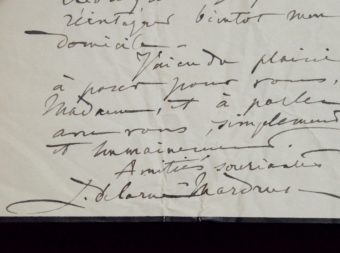 réintégrer bientôt mon
domicile.
J'ai eu du plaisir
à poser pour vous,
Madame, et à parler
avec vous, simplement
et humainement.
Amitiés souriantes
L. Delarue-Mardrus